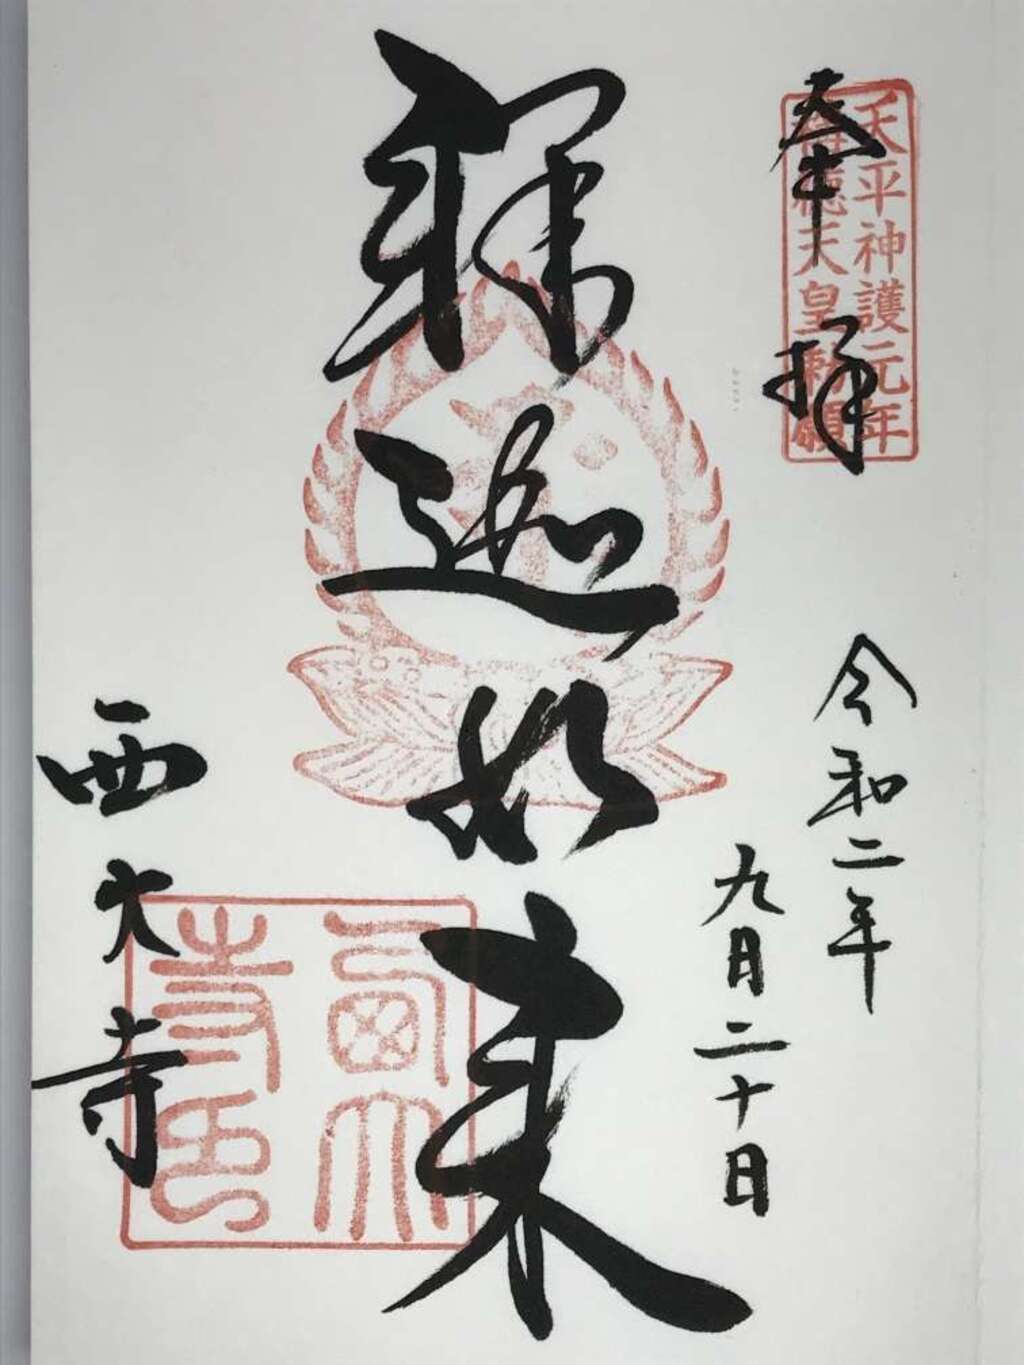 奉拝
天平神護元年
称徳天皇勅願
令和二年
九月二十日
釈迦如来
西大寺
西大寺印